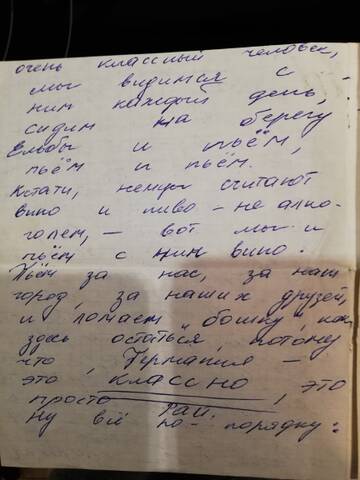 очень классный человек,
мы видимся с
ним каждый день,
сидим на берегу
Эльбы и пьём,
пьём и пьём.
Кстати, немцы считают
вино и пиво – не алко-
голем, – вот мы и
пьём с ним вино.
Пьём за нас, за наш
город, за наших друзей,
и ломаем "бошку", как
здесь остаться, потому
что, Германия –
это классно, это
просто рай.
Ну всё по-порядку: